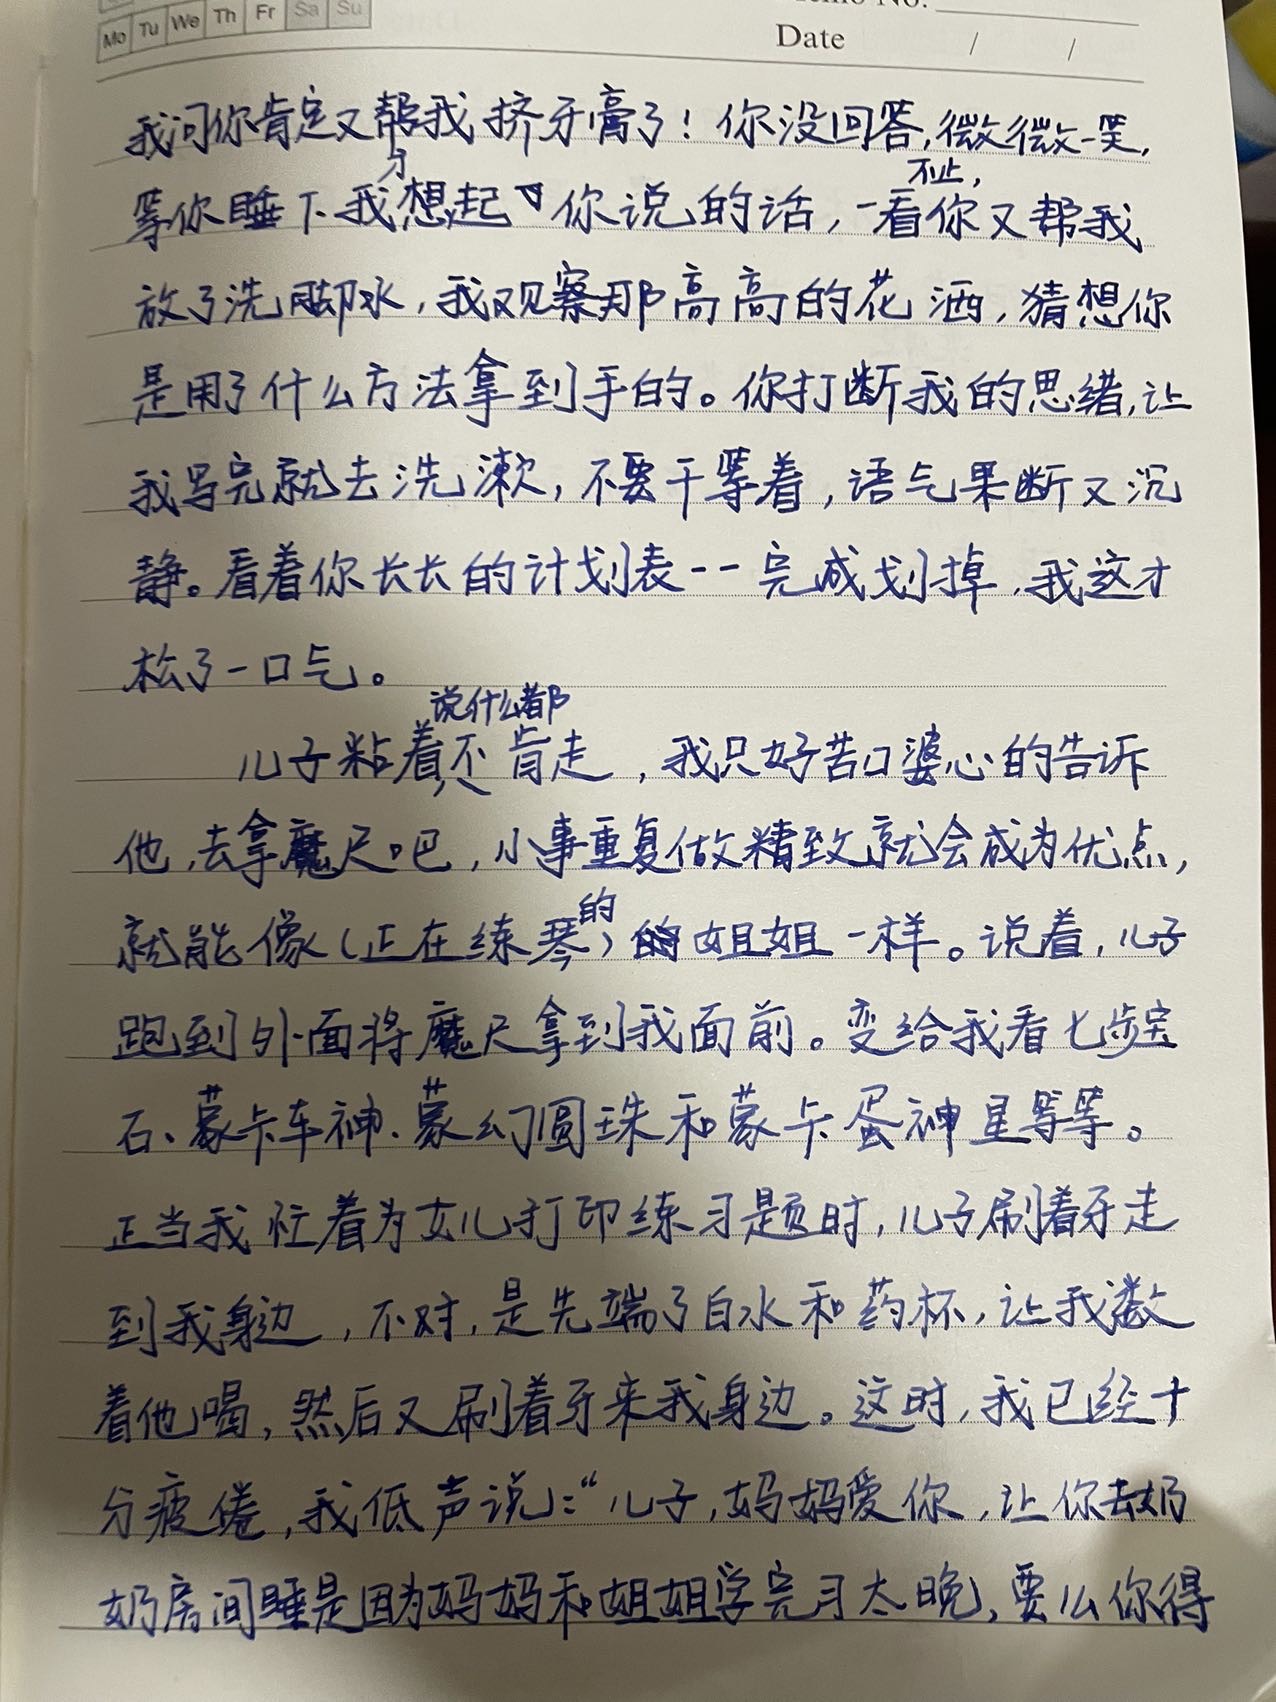 Mo Tu We Th Fr Sa Su
Memo No.
Date / /
我问你肯定又帮我挤牙膏了！你没回答,微微一笑,
等你睡下我才想起你说的话，不止,一看你又帮我
放了洗脚水，我观察那高高的花洒，猜想你
是用了什么方法拿到手的。你打断我的思绪,让
我写完就去洗漱，不要干等着，语气果断又沉
静。看着你长长的计划表一一完成划掉,我这才
松了一口气。
儿子粘着说什么都不肯走，我只好苦口婆心的告诉
他,去拿魔尺吧，小事重复做精致就会成为优点,
就能像(正在练琴的)的姐姐一样。说着,儿子
跑到外面将魔尺拿到我面前。变给我看七步宝
石、蒙卡车神、蒙幻圆珠和蒙卡蛋神星等等。
正当我忙着为女儿打印练习题时,儿子刷着牙走
到我身边，不对,是先端了白水和药杯,让我数
着他喝,然后又刷着牙来我身边。这时,我已经十
分疲倦,我低声说:“儿子,妈妈爱你,让你去奶
奶房间睡是因为妈妈和姐姐学完习太晚,要么你得